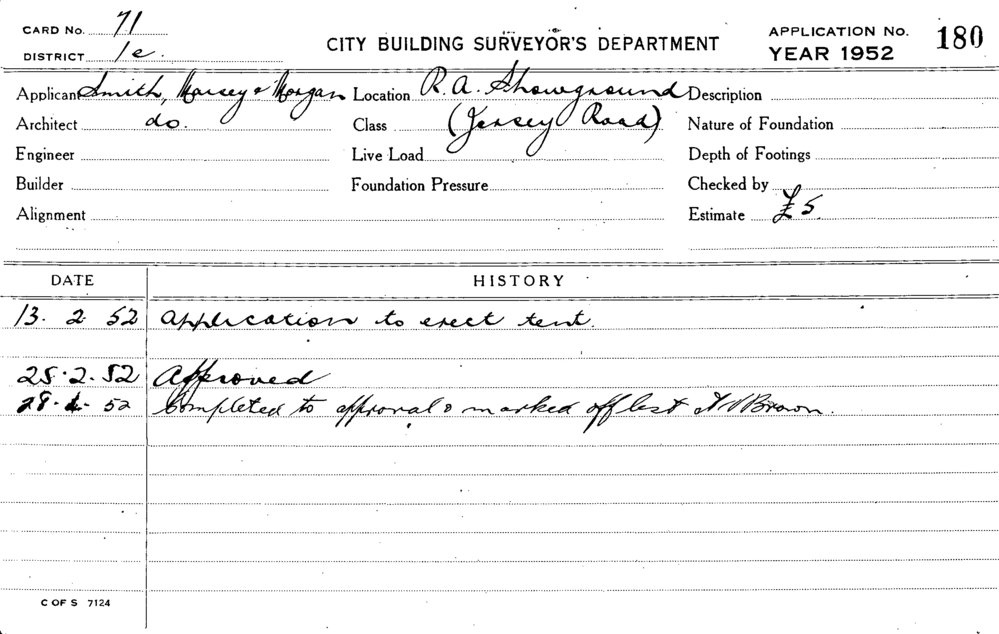 CARD No. 71
DISTRICT 1e.
CITY BUILDING SURVEYOR'S DEPARTMENT
APPLICATION No. 180
YEAR 1952
Applicant Smith, Massey & Morgan Location R.A. Showground Description
Architect do. Class (Jersey Road) Nature of Foundation
Engineer Live Load Depth of Footings
Builder Foundation Pressure Checked by
Alignment Estimate £5
DATE HISTORY
13. 2 52 Application to erect tent.
25.2.52 Approved
28. 52 Completed to approval & marked off list Brown.
C OF S 7124